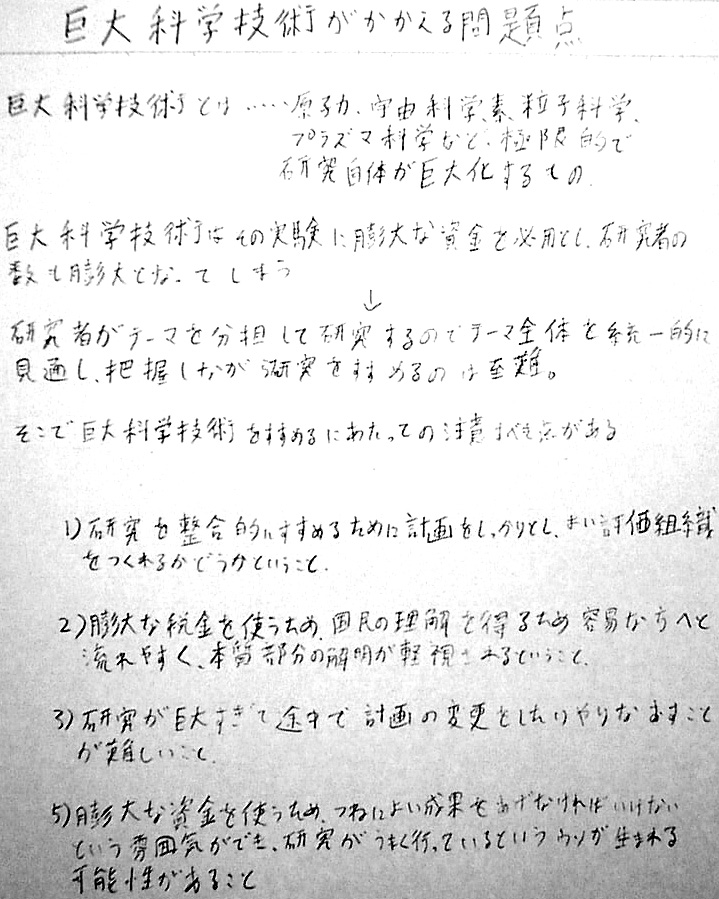 巨大科学技術がかかえる問題点
巨大科学技術とは……原子力、宇宙科学、素粒子科学、
プラズマ科学など、極限的で
研究自体が巨大化するもの.
巨大科学技術はその実験に膨大な資金を必用とし、研究者の
数も膨大となってしまう
↓
研究者がテーマを分担して研究するのでテーマ全体を統一的に
見通し、把握しながら研究をすすめるのは至難。
そこで巨大科学技術をすすめるにあたっての注意すべき点がある
1)研究を整合的にすすめるために計画をしっかりとし、よい評価組織
をつくれるかどうかということ.
2)膨大な税金を使うため、国民の理解を得るため容易な方へと
流れやすく、本質部分の解明が軽視されるということ.
3)研究が巨大すぎて途中で計画の変更をしたりやりなおすこと
が難しいこと.
5)膨大な資金を使うため、つねによい成果をあげなければいけない
という雰囲気ができ、研究がうまく行っているというウソが生まれる
可能性があること